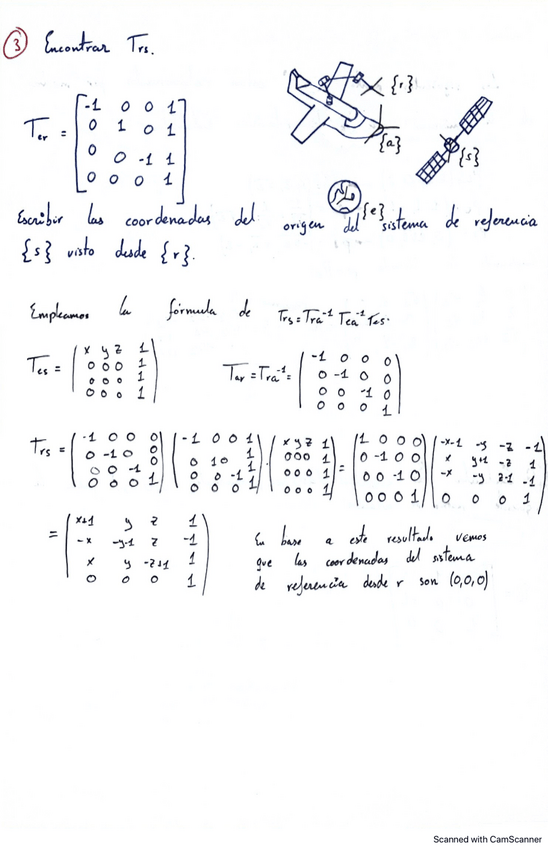 ③ Encontrar Trs.
Ter = [-1 0 0 1
0 1 0 1
0 0 -1 1
0 0 0 1]
{r}
{a}
{s}
{e}
Escribir las coordenadas del origen del sistema de referencia
{s} visto desde {r}.
Empleamos la fórmula de Trs = Tra⁻¹ Tea⁻¹ Tes.
Tes = (x y z 1
0 0 0 1
0 0 0 1
0 0 0 1)
Tar = Tra⁻¹ = (-1 0 0 0
0 -1 0 0
0 0 -1 0
0 0 0 1)
Trs = (-1 0 0 0
0 -1 0 0
0 0 -1 0
0 0 0 1) (-1 0 0 1
0 1 0 1
0 0 -1 1
0 0 0 1) · (x y z 1
0 0 0 1
0 0 0 1
0 0 0 1) = (1 0 0 0
0 -1 0 0
0 0 -1 0
0 0 0 1) (-x-1 -y -z -1
x y+1 -z 1
-x -y z-1 -1
0 0 0 1)
= (x+1 y z 1
-x -y-1 z -1
x y -z+1 1
0 0 0 1)
En base a este resultado vemos
que las coordenadas del sistema
de referencia desde r son (0,0,0)
Scanned with CamScanner